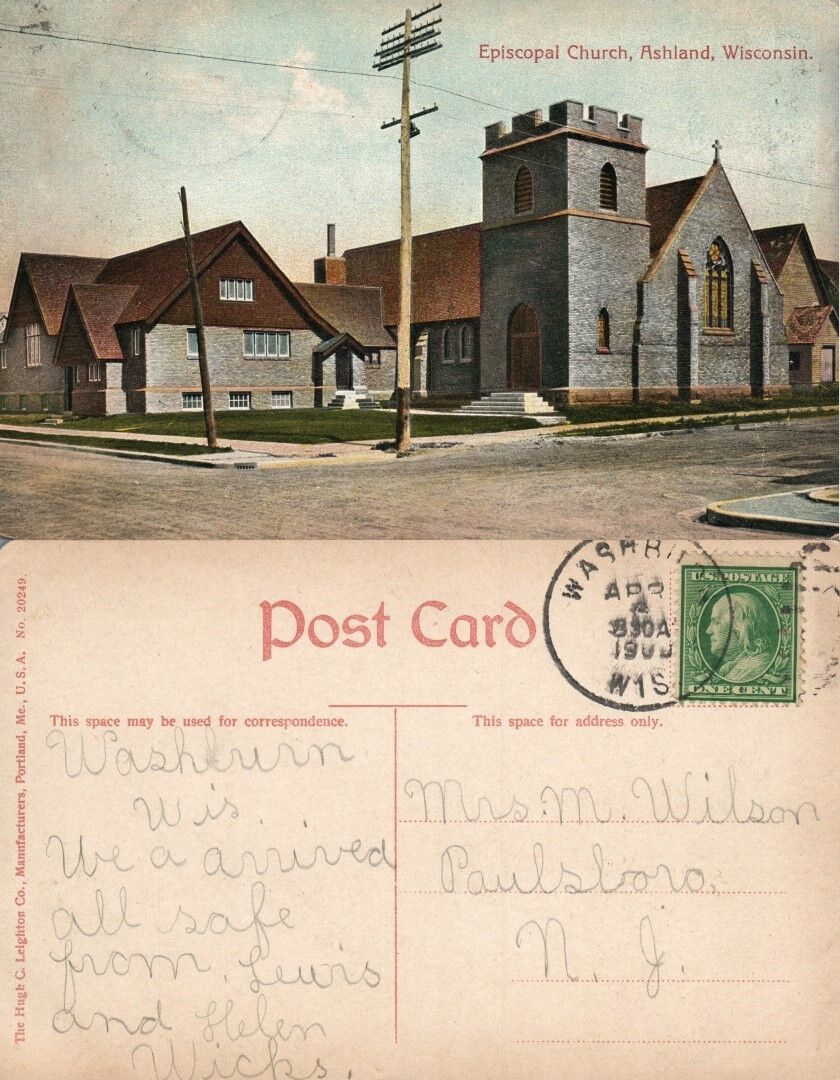 Episcopal Church, Ashland, Wisconsin.
Post Card
WASHBURN
APR
4
830A
WIS
U.S. POSTAGE
ONE CENT
The Hugh C. Leighton Co., Manufacturers, Portland, Me., U. S. A. No. 20249.
This space may be used for correspondence.
Washburn
Wis.
We a arrived
all safe
from, Lewis
and Helen
Wicks.
This space for address only.
Mrs. M. Wilson
Paulsboro,
N. J.